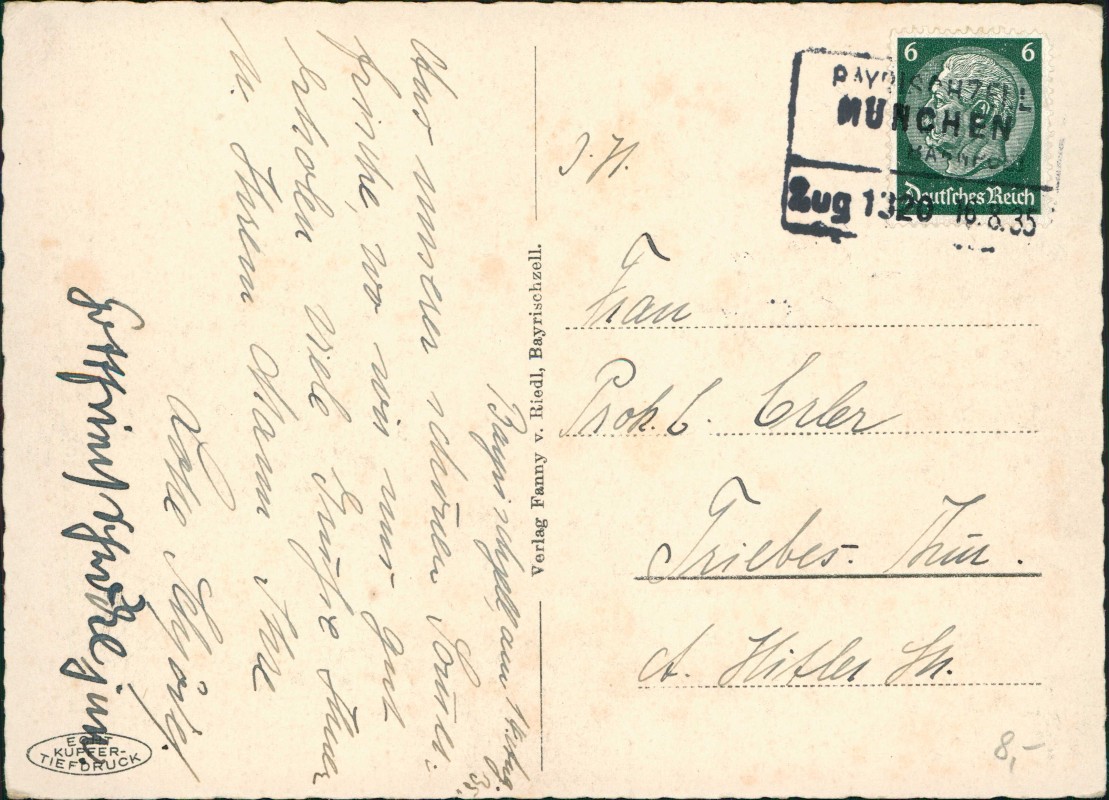 Bayrischzell, am 14. Aug. 35.
Aus unserer schönen Sommer-
frische, wo wir uns gut
erholen viele Grüße Ihnen
u. Ihrem Mann Ihre
Lotte
jun.
ECHT
KUPFER-
TIEFDRUCK
Verlag Fanny v. Riedl, Bayrischzell.
6 6
Deutsches Reich
BAYRISCHZELL
MÜNCHEN
BAHNPOST
Zug 1320 16.8.35
Frau
Prok. Erler
Triebes. Thür.
A. Hitler Str.
8,-